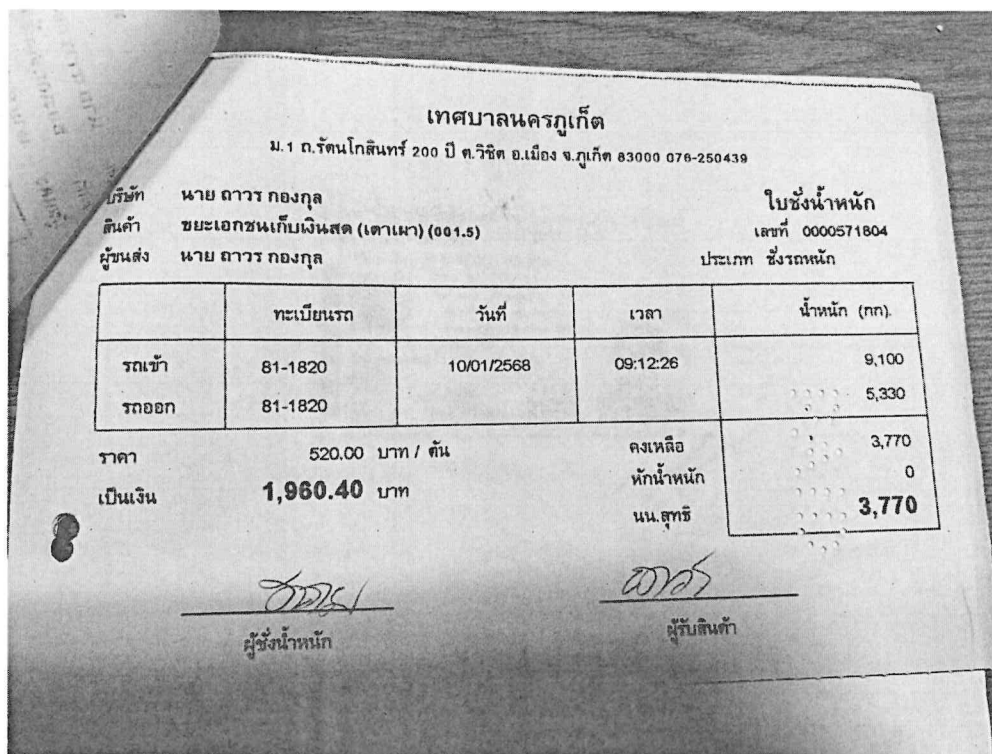 เทศบาลนครภูเก็ต
ม.1 ถ.รัตนโกสินทร์ 200 ปี ต.วิชิต อ.เมือง จ.ภูเก็ต 83000 076-250439
บริษัท นาย ถาวร กองกุล
ใบชั่งน้ำหนัก
สินค้า ขยะเอกชนเก็บเงินสด (เตาเผา) (001.5)
เลขที่ 0000571804
ผู้ขนส่ง นาย ถาวร กองกุล
ประเภท ชั่งรถหนัก
ทะเบียนรถ วันที่ เวลา น้ำหนัก (กก).
รถเข้า 81-1820 10/01/2568 09:12:26 9,100
รถออก 81-1820 5,330
ราคา 520.00 บาท / ตัน คงเหลือ 3,770
เป็นเงิน 1,960.40 บาท หักน้ำหนัก 0
นน.สุทธิ 3,770
ผู้ชั่งน้ำหนัก ผู้รับสินค้า